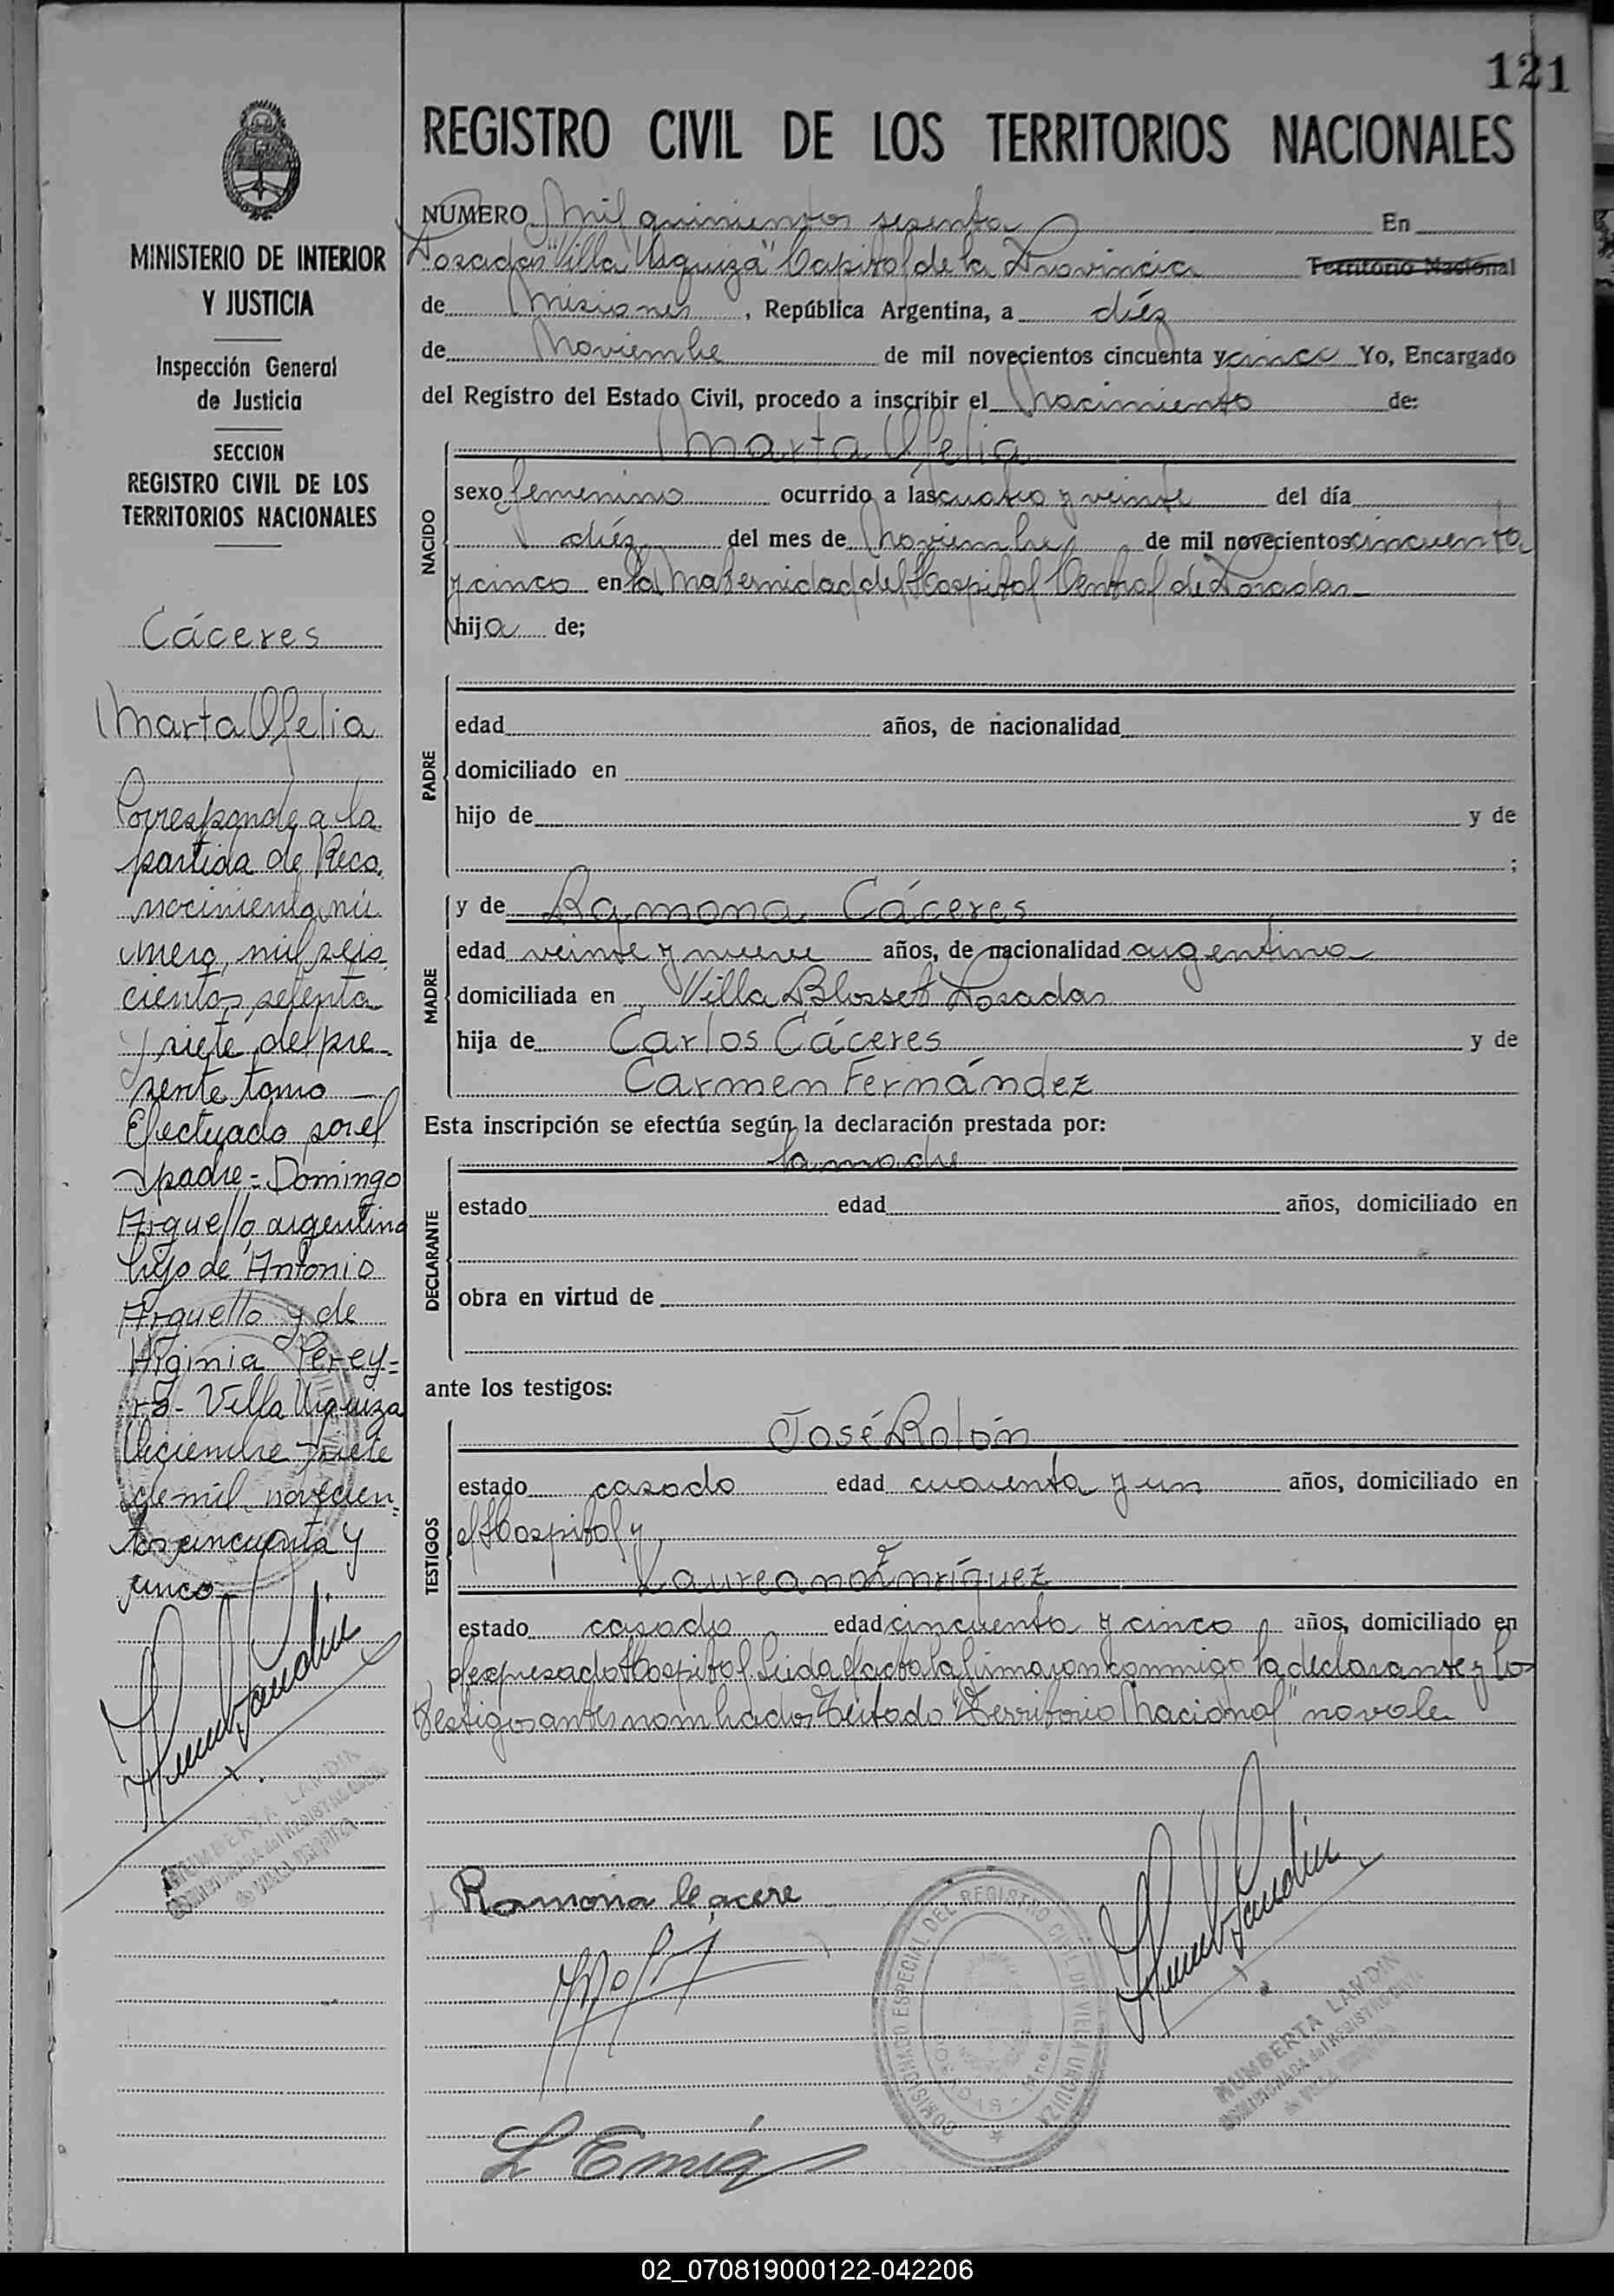 121
MINISTERIO DE INTERIOR
Y JUSTICIA
Inspección General
de Justicia
SECCION
REGISTRO CIVIL DE LOS
TERRITORIOS NACIONALES
Cáceres
Marta Ofelia
Corresponde a la
partida de Reco,
nocimiento nú
mero, mil seis,
cientos setenta
y siete del pre
sente tomo
Efectuado por el
padre = Domingo
Arguello, argentino
hijo de Antonio
Arguello y de
Higinia Perey=
ra - Villa Urquiza
Diciembre siete
de mil novecien=
tos cincuenta y
cinco
HUMBERTA LANDIN
COMISIONADA del REGISTRO CIVIL
de VILLA URQUIZA
REGISTRO CIVIL DE LOS TERRITORIOS NACIONALES
NUMERO Mil quinientos sesenta En
Posadas "Villa Urquiza" Capital de la Provincia Territorio Nacional
de Misiones, República Argentina, a diéz
de Noviembre de mil novecientos cincuenta y cinco Yo, Encargado
del Registro del Estado Civil, procedo a inscribir el Nacimiento de:
NACIDO
Marta Ofelia
sexo femenino ocurrido a las cuatro y veinte del día
diéz del mes de Noviembre de mil novecientos cincuenta
y cinco en la Maternidad del Hospital Central de Posadas
hija de;
PADRE
edad años, de nacionalidad
domiciliado en
hijo de y de
;
MADRE
y de Ramona Cáceres
edad veinte y nueve años, de nacionalidad argentina
domiciliada en Villa Blosset Posadas
hija de Carlos Cáceres y de
Carmen Fernández
Esta inscripción se efectúa según la declaración prestada por:
DECLARANTE
la madre
estado edad años, domiciliado en
obra en virtud de
ante los testigos:
TESTIGOS
José Rolón
estado casado edad cuarenta y un años, domiciliado en
el Hospital y
Laureano Enríquez
estado casado edad cincuenta y cinco años, domiciliado en
el expresado Hospital. Leida el acta la firmaron conmigo la declarante y los
testigos antes nombrados. Testado "Territorio Nacional" no vale
Ramona Cacere
COMISIONADO ESPECIAL DEL REGISTRO CIVIL DE VILLA URQUIZA
HUMBERTA LANDIN
COMISIONADA del REGISTRO CIVIL
de VILLA URQUIZA
02_070819000122-042206